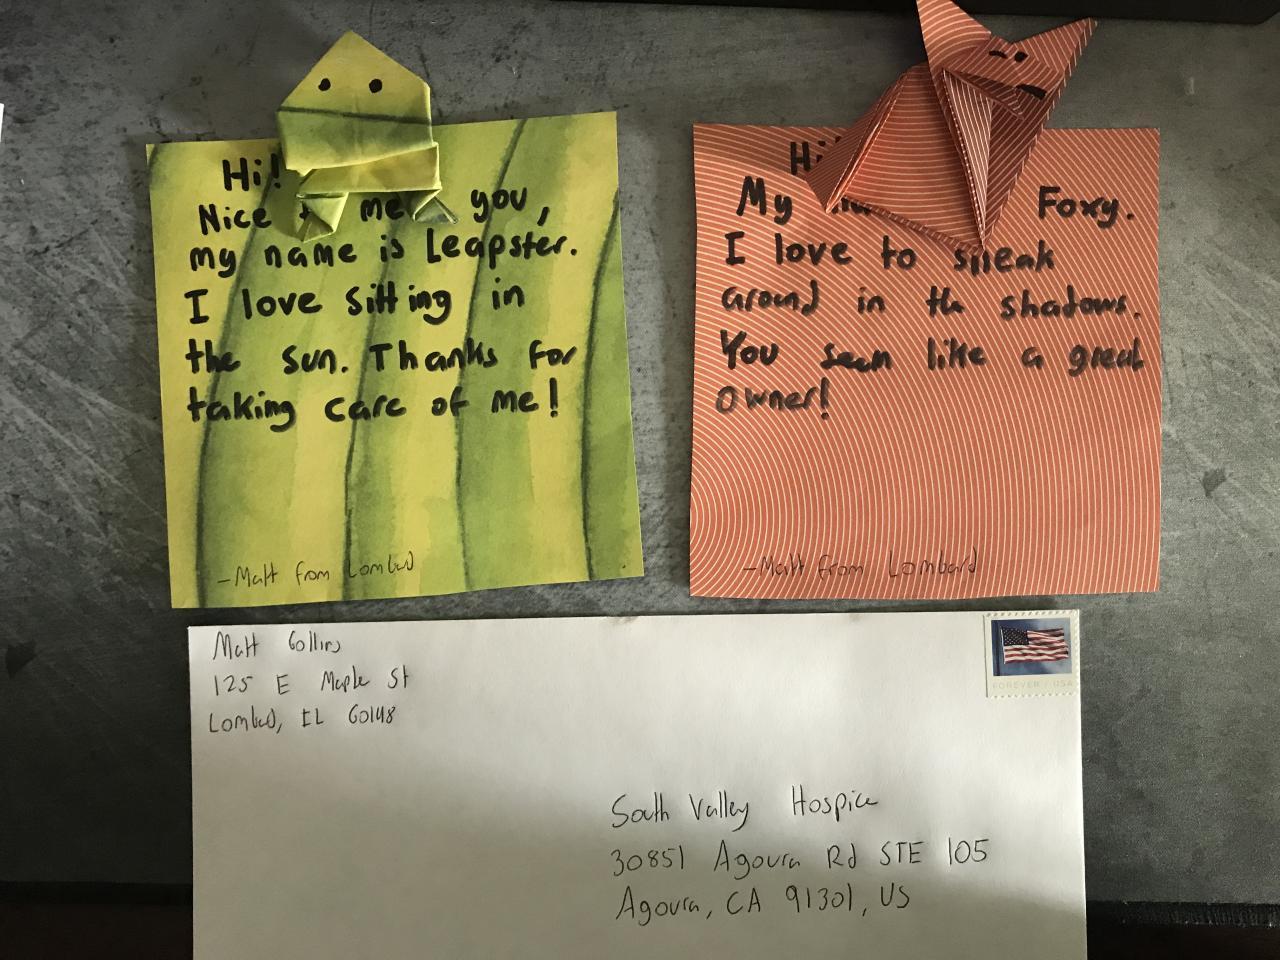 Hi!
Nice me you,
my name is Leapster.
I love sitting in
the sun. Thanks for
taking care of me!
-Matt from Lombard
Hi
My Foxy.
I love to sneak
around in the shadows.
You seem like a great
owner!
-Matt from Lombard
Matt Collins
125 E Maple St
Lombard, IL 60148
FOREVER / USA
South Valley Hospice
30851 Agoura Rd STE 105
Agoura, CA 91301, US